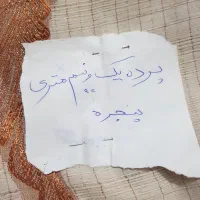 پرده یک ونیم متری
پنجره